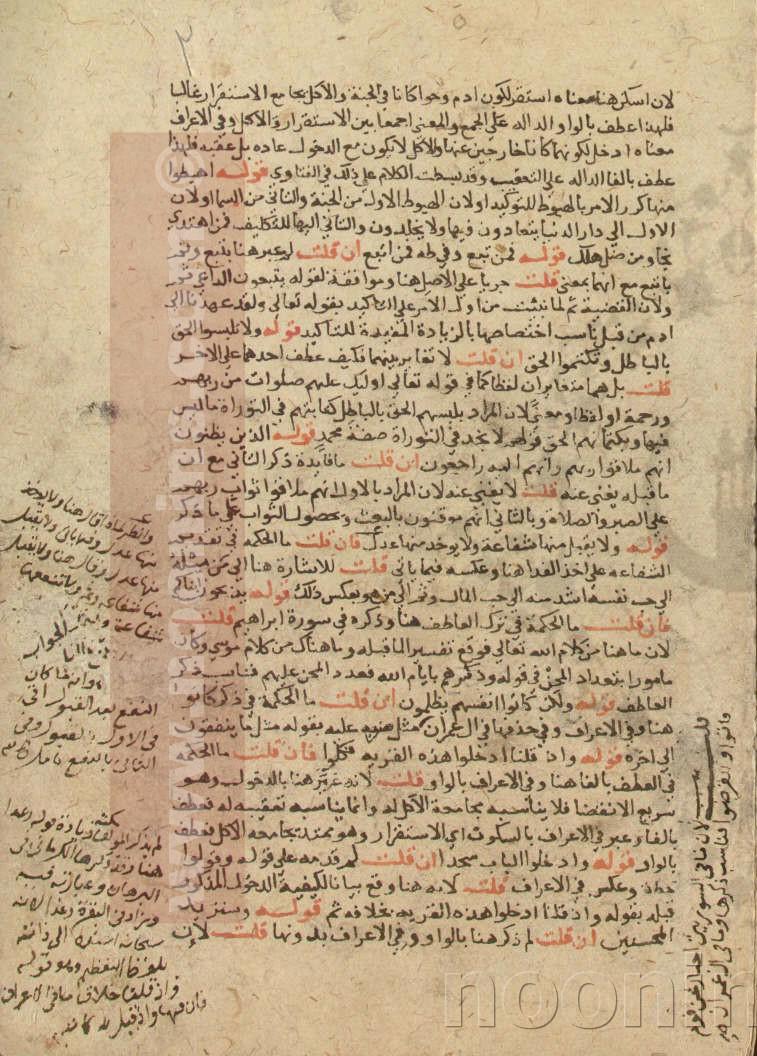 لان اسكن هنا معناه استقر لكون ادم وحوا كانا في الجنة والاكل يجامع الاستقرار غالبا
فلهذا عطف بالواو الداله على الجمع والمعنى اجمعا بين الاستقرار والاكل وفي الاعراف
معناه ادخل لكونهما كانا خارجين عنها والاكل لا يكون مع الدخول عاده بل عقبه فلهذا
عطف بالفا الداله على التعقيب وقد بسطت الكلام على ذلك في الفتاوى قوله اهبطوا
منها كرر الامر بالهبوط للتوكيد او لان الهبوط الاول من الجنة والثاني من السما او لان
الاول الى دار الدنيا يتعادون فيها ولا يخلدون والثاني اليها للتكليف فمن اهتدى
نجا ومن ضل هلك قوله فمن تبع وفي طه فمن اتبع ان قلت لم عبر هنا بتبع وثم
باتبع مع انهما بمعنى قلت جريا على الاصل هنا وموافقة لقوله يتبعون الداعي ثم
ولان القضية ثم لما بنيت من اول الامر على التاكيد بقوله تعالى ولقد عهدنا الى
ادم من قبل ناسب اختصاصها بالزيادة المفيدة للتاكيد قوله ولا تلبسوا الحق
بالباطل وتكتموا الحق ان قلت لا تغاير بينهما فكيف عطف احدهما على الاخر
قلت بل هما متغايران لفظا كما في قوله تعالى اوليك عليهم صلوات من ربهم
ورحمة او لفظا ومعنى لان المراد بلبسهم الحق بالباطل كتابتهم في التوراة ما ليس
فيها وبكتمانهم الحق قولهم لا نجد في التوراة صفة محمد قوله الذين يظنون
انهم ملاقوا ربهم وانهم اليه راجعون ان قلت ما فايدة ذكر الثاني مع ان
ما قبله يغني عنه قلت لا يغني عنه لان المراد بالاول انهم ملاقوا ثواب ربهم
على الصبر والصلاة وبالثاني انهم موقنون بالبعث وبحصول الثواب على ما ذكر
قوله ولا يقبل منها شفاعة ولا يوخذ منها عدل فان قلت ما الحكمة في تقديم
الشفاعه على اخذ الفدا هنا وعكسه فيما ياتي قلت للاشارة هنا الى من ميله
الى حب نفسه اشد منه الى حب المال وثم الى من هو بعكس ذلك قوله يذبحون ابناكم
فان قلت ما الحكمة في ترك العاطف هنا وذكره في سورة ابراهيم قلت
لان ما هنا من كلام الله تعالى فوقع تفسيرا لما قبله وما هناك من كلام موسى وكان
مامورا بتعداد المحن في قوله وذكرهم بايام الله فعدد المحن عليهم فناسب ذكر
العاطف قوله ولكن كانوا انفسهم يظلمون ان قلت ما الحكمة في ذكر كانوا
هنا وفي الاعراف وفي حذفها في ال عمران
الى اخره قوله واذ قلنا ادخلوا هذه القرية فكلوا فان قلت ما الحكمه
في العطف بالفا هنا وفي الاعراف بالواو قلت لانه عبر هنا بالدخول وهو
سريع الانقضا فلا يناسبه مجامعة الاكل له وانما يناسبه تعقيبه له فعطف
بالفا وعبر في الاعراف بالسكون اي الاستقرار وهو ممتد يجامعه الاكل فعطف
بالواو قوله وادخلوا الباب سجدا ان قلت لم قدمه على قوله وقولوا
حطة وعكس في الاعراف قلت لانه هنا وقع بيانا لكيفية الدخول المذكور
قبله بقوله واذ قلنا ادخلوا هذه القرية بخلافه ثم قوله وسنزيد
المحسنين ان قلت لم ذكر هنا بالواو وفي الاعراف بدونها قلت لان
منها عدل وقال هنا ولا يقبل
منها شفاعة وثم ولا تنفعها
شفاعة
النفع بعد القبول
هنا
البرهان وعبارته فيه
وزاد في البقرة رغدا لانه
سبحانه اسنده الى ذاته
بلفظ التعظيم وهو قوله
واذ قلنا خلاف ما في الاعراف
فان فيها واذ قيل